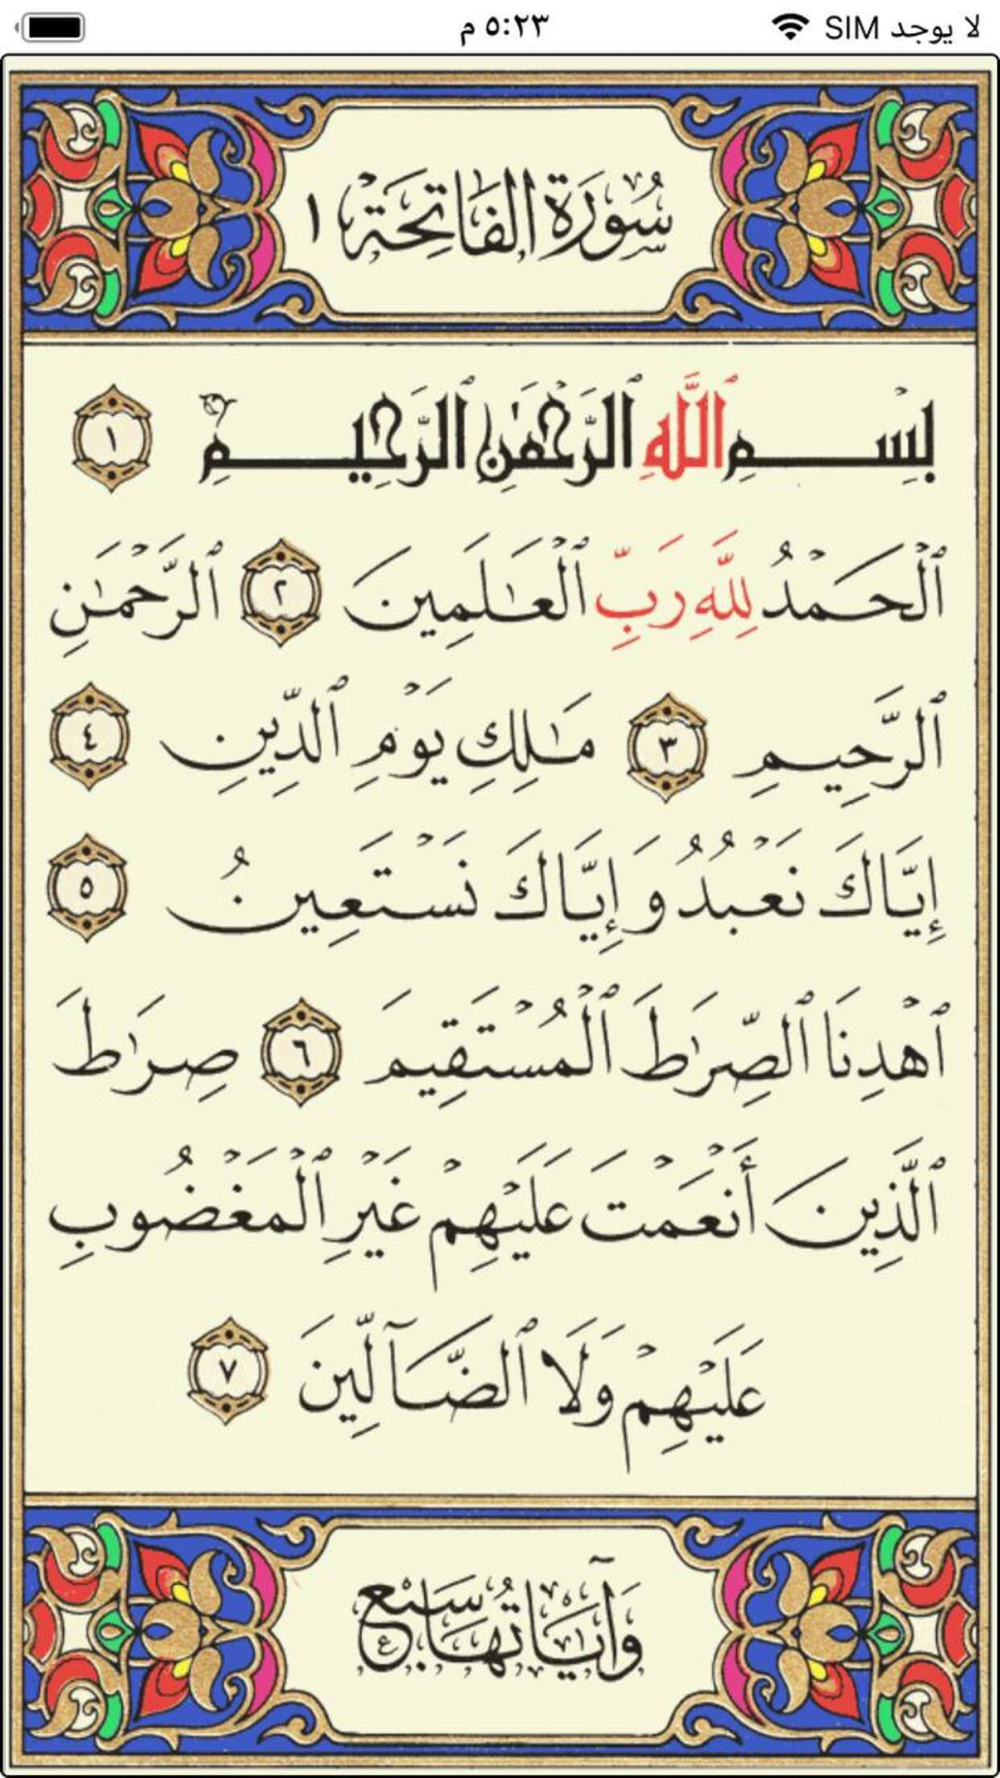 لا يوجد SIM ٥:٢٣ م
سُورَةُ الفَاتِحَةِ ١
بِسْمِ ٱللَّهِ ٱلرَّحْمَٰنِ ٱلرَّحِيمِ ١
ٱلْحَمْدُ لِلَّهِ رَبِّ ٱلْعَٰلَمِينَ ٢ ٱلرَّحْمَٰنِ
ٱلرَّحِيمِ ٣ مَٰلِكِ يَوْمِ ٱلدِّينِ ٤
إِيَّاكَ نَعْبُدُ وَإِيَّاكَ نَسْتَعِينُ ٥
ٱهْدِنَا ٱلصِّرَٰطَ ٱلْمُسْتَقِيمَ ٦ صِرَٰطَ
ٱلَّذِينَ أَنْعَمْتَ عَلَيْهِمْ غَيْرِ ٱلْمَغْضُوبِ
عَلَيْهِمْ وَلَا ٱلضَّآلِّينَ ٧
وَآيَاتُهَا سَبْعٌ